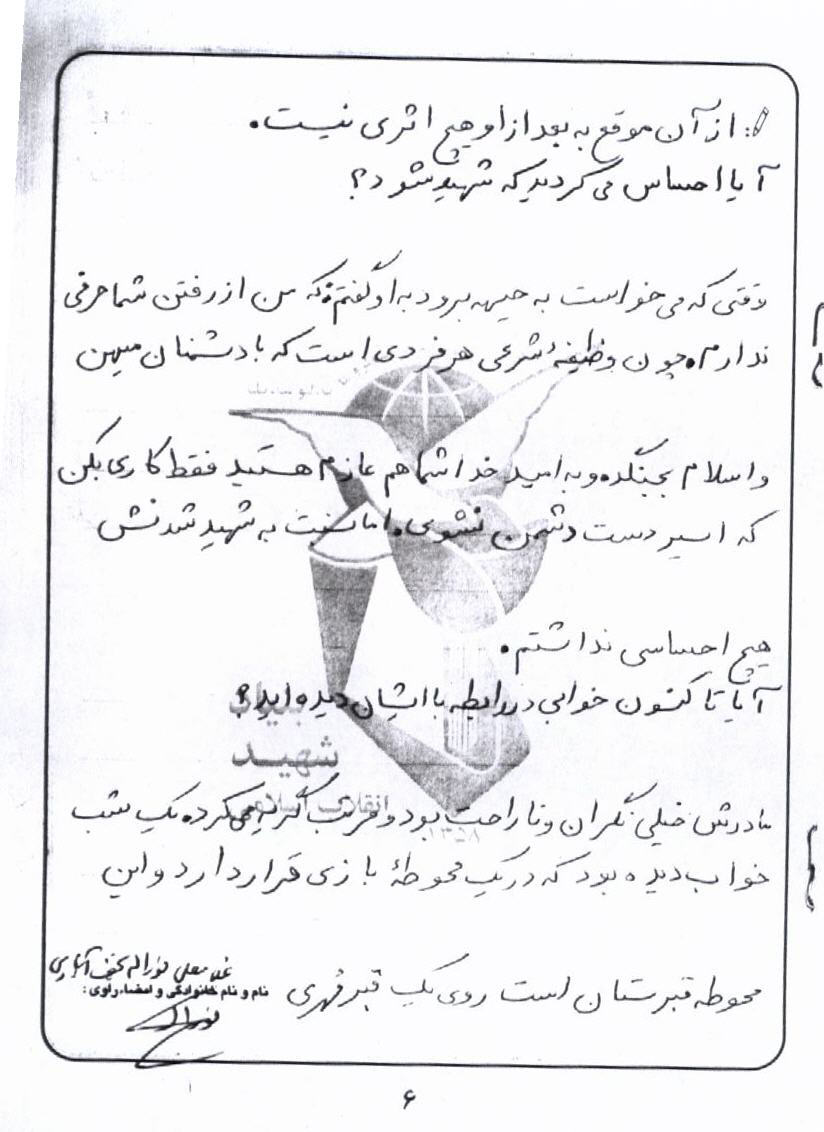 : از آن موقع به بعد از او هیچ اثری نیست.
آیا احساس می کردید که شهید شود؟
وقتی که می خواست به جبهه برود به او گفتم که من از رفتن شما حرفی
ندارم. چون وظیفهٔ شرعی هر فردی است که با دشمنان میهن
و اسلام بجنگد. و به امید خدا شما هم عازم هستید فقط کاری بکن
که اسیر دست دشمن نشوی. اما نسبت به شهید شدنش
هیچ احساسی نداشتم.
آیا تا کنون خوابی در رابطه با ایشان دیده اید؟
بنیاد
شهید
انقلاب اسلامی
۱۳۵۸
مادرش خیلی نگران و ناراحت بود و مرتب گریه می کرد. یک شب
خواب دیده بود که در یک محوطهٔ بازی قرار دارد و این
محوطه قبرستان است روی یک قبر مُهری
غلامعلی
نام و نام خانوادگی و امضاء راوی:
۶